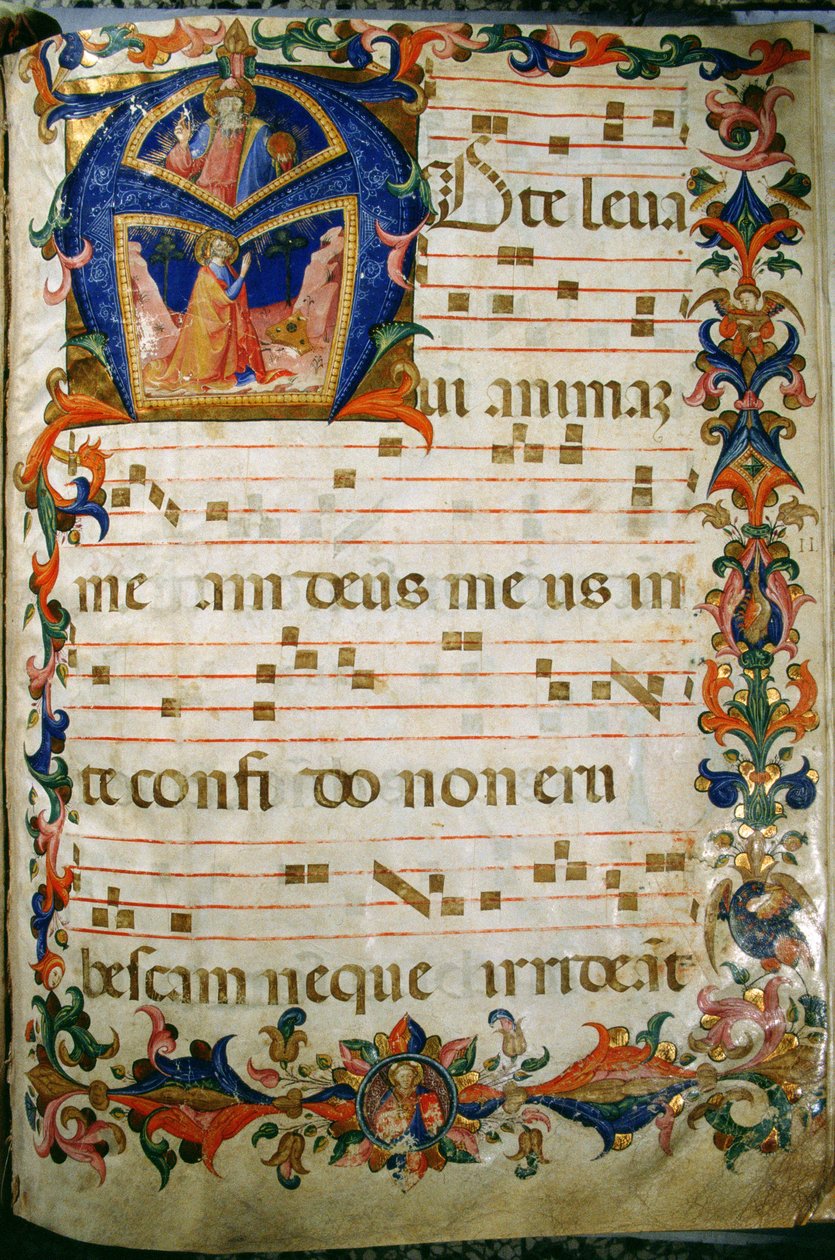 AD te leua
ui animaꝫ
me am deus meus in
te confido non eru
bescam neque irrideāt
II